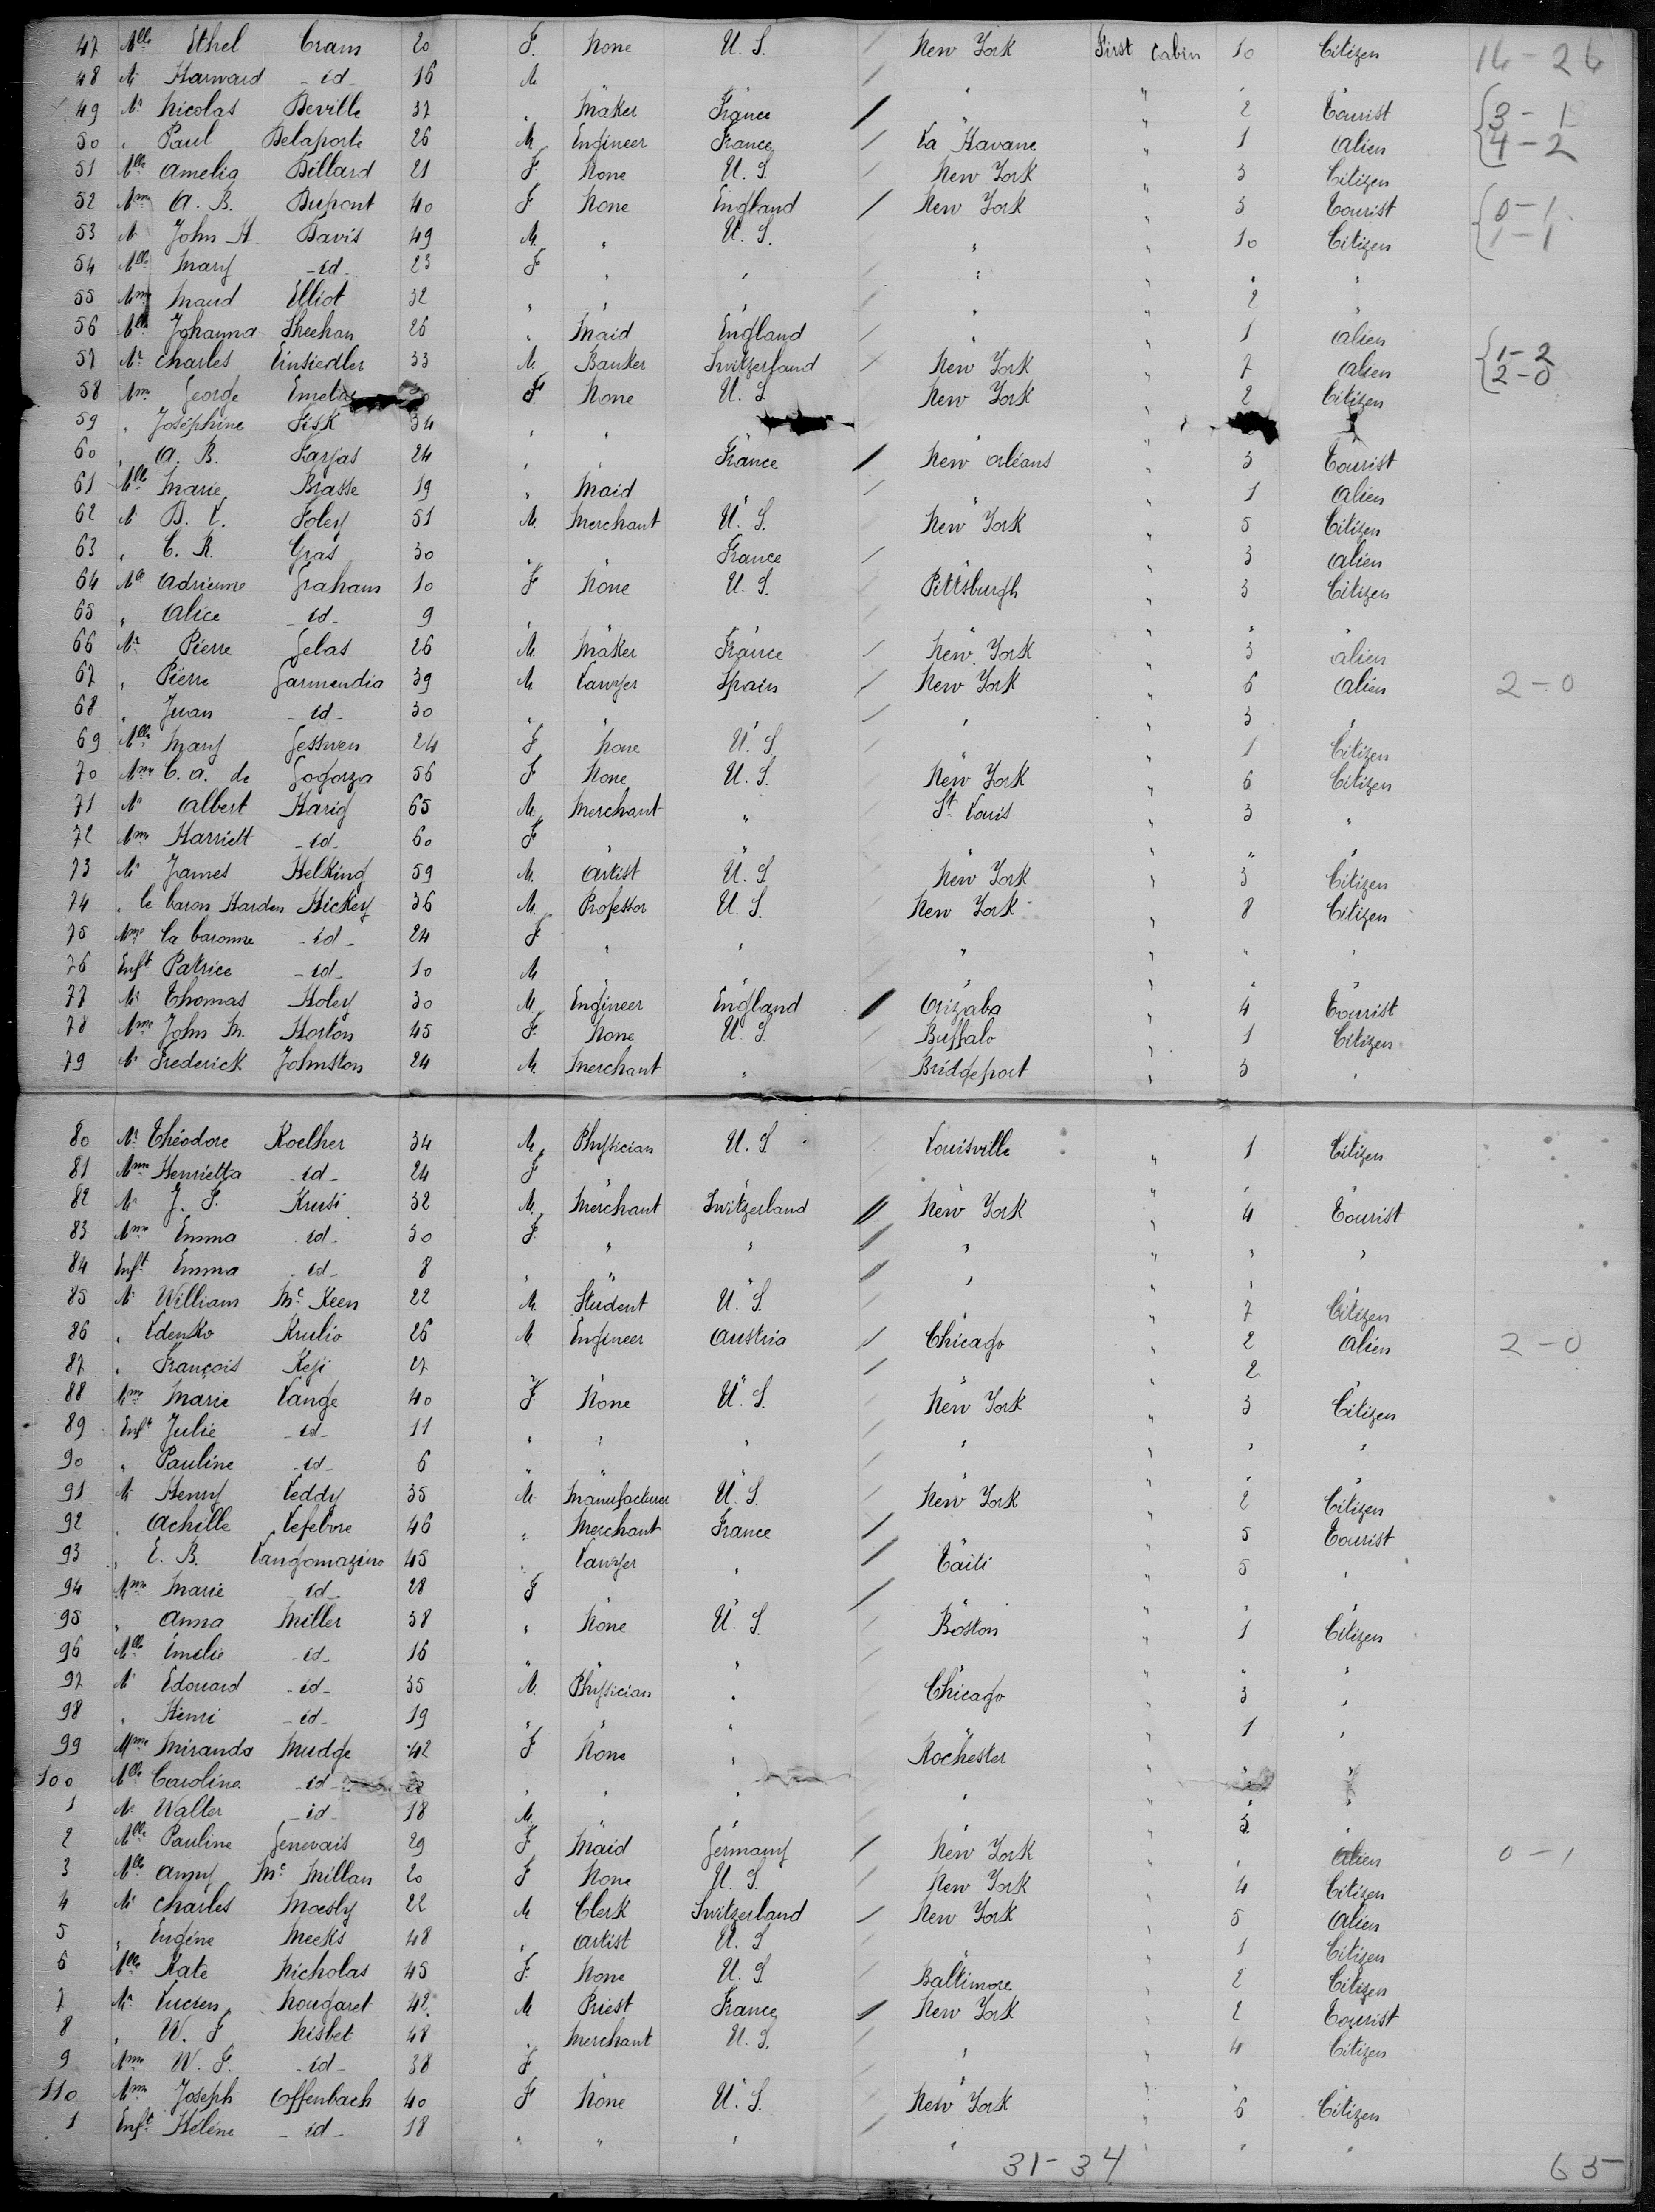 47 Mlle Ethel Cram 20 F. None U. S. / New York First Cabin 10 Citizen 16 - 26
48 Mr Harward - id - 16 M " " / " " " "
49 Mr Nicolas Deville 37 " Maker France / " " 2 Tourist 3 - 1
50 " Paul Delaporte 26 M Engineer France / La Havane " 1 Alien 4 - 2
51 Mlle Amelia Dillard 21 F None U. S. / New York " 3 Citizen
52 Mme A. B. Dupont 40 F None England / New York " 3 Tourist 0 - 1
53 Mr John H. Davis 49 M. " U. S. " " 10 Citizen 1 - 1
54 Mlle Mary - id - 23 F " " / " " " "
55 Mme Maud Elliot 32 " " " / " " 2 "
56 Mlle Johanna Sheehan 26 " Maid England / " " 1 Alien
57 Mr Charles Einsiedler 33 M Banker Switzerland / New York " 7 Alien 1 - 2
58 Mme George F. None U. S. New York " 2 Citizen 2 - 0
59 " Joséphine Fisk 34 " " "
60 " A. B. Farjas 24 " " France / New Orléans " 3 Tourist
61 Mlle Marie Brasse 19 " Maid " / " " 1 Alien
62 Mr D. L. Foley 51 M. Merchant U. S. New York " 5 Citizen
63 " C. R. Gras 30 " " France / " " 3 Alien
64 Mlle Adrienne Graham 10 F None U. S. Pittsburgh " 3 Citizen
65 " Alice - id - 9 " " " " " " "
66 Mr Pierre Gelas 26 M. Maker France / New York " 3 Alien
67 " Pierre Garmendia 39 M Lawyer Spain / New York " 6 Alien 2 - 0
68 " Juan - id - 30 " " " / " " 3 "
69 Mlle Mary Gesswen 24 F None U. S / " " 1 Citizen
70 Mme C. A. de Gogorza 56 F None U. S. New York " 6 Citizen
71 Mr Albert Harig 65 M. Merchant " St. Louis " 3 "
72 Mme Harriett - id - 60 F " " " " " "
73 Mr James Helsking 59 M. Artist U. S. New York " 3 Citizen
74 " le baron Harden Hickey 36 M. Professor U. S. New York " 8 Citizen
75 Mme la baronne - id - 24 F. " " " " " "
76 Enft Patrice - id - 10 M " " " " " "
77 Mr Thomas Holey 30 M. Engineer England / Orizaba " 4 Tourist
78 Mme John M. Horton 45 F. None U. S. Buffalo " 1 Citizen
79 Mr Frederick Johnston 24 M. Merchant " Bridgeport " 3 "
80 Mr Théodore Koelher 34 M. Physician U. S Louisville " 1 Citizen
81 Mme Henrietta - id - 24 F " " " " " "
82 Mr J. S. Krusi 32 M. Merchant Switzerland // New York " 4 Tourist
83 Mme Emma - id - 30 F. " " / " " " "
84 Enft Emma - id - 8 " " " / " " " "
85 Mr William Mc Keen 22 M. Student U. S. " " 7 Citizen
86 " Edenko Krulio 26 M. Engineer Austria / Chicago " 2 Alien 2 - 0
87 " François Keji 27 " " " / " " 2 "
88 Mme Marie Lange 40 F. None U. S. New York " 3 Citizen
89 Enft Julie - id - 11 " " " " " " "
90 " Pauline - id - 6 " " " " " " "
91 Mr Henry Leddy 35 M. Manufacturer U. S. New York " 2 Citizen
92 " Achille Lefebvre 46 " Merchant France / " " 5 Tourist
93 " E. B. Langomazino 45 " Lawyer " / Taïti " 5 "
94 Mme Marie - id - 28 F " " / " " " "
95 " Anna Miller 38 " None U. S. Boston " 1 Citizen
96 Mlle Emilie - id - 16 " " " " " " "
97 Mr Edouard - id - 35 M. Physician " Chicago " 3 "
98 " Henri - id - 19 " " " " " 1 "
99 Mme Miranda Mudge 42 F None " Rochester " " "
100 Mlle Caroline - id - " " " " " " "
1 Mr Walter - id - 18 M. " " " " 3 "
2 Mlle Pauline Genevais 29 F Maid Germany / New York " " Alien 0 - 1
3 Mlle Anny Mc Millan 20 F None U. S. New York " 4 Citizen
4 Mr Charles Moesly 22 M Clerk Switzerland / New York " 5 Alien
5 " Eugène Meeks 48 " Artist U. S " " 1 Citizen
6 Mlle Kate Nicholas 45 F. None U. S Baltimore " 2 Citizen
7 Mr Lucien Nougaret 42 M Priest France / New York " 2 Tourist
8 " W. F Nisbet 48 " Merchant U. S. " " 4 Citizen
9 Mme W. F. - id - 38 F " " " " " "
110 Mme Joseph Offenbach 40 F None U. S. New York " 6 Citizen
1 Enft Hélène - id - 18 " " " " " " "
31 - 34 65